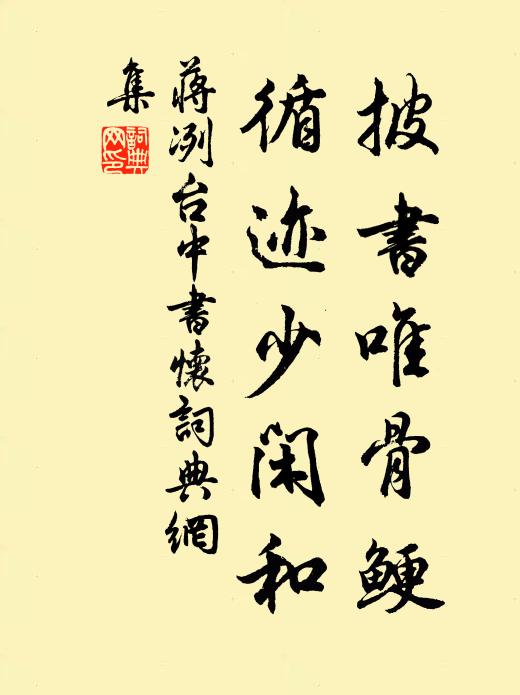 披書唯骨鯁
循迹少閑和
蔣冽台中書懷詞典網
集
詞典網印